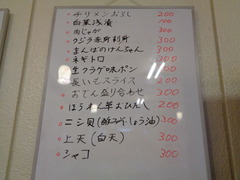 チリメンおろし 200
白菜浅漬 100
肉じゃが 300
クジラ赤身刺身 300
まんばのけんちゃん 300
ネギトロ 300
生クラゲ味ポン 300
長いもスライス 200
おでん盛り合わせ 300
ほうれん草おひたし 200
ニシ貝(酢みそ・しょう油) 300
上天(白天) 300
シャコ 300